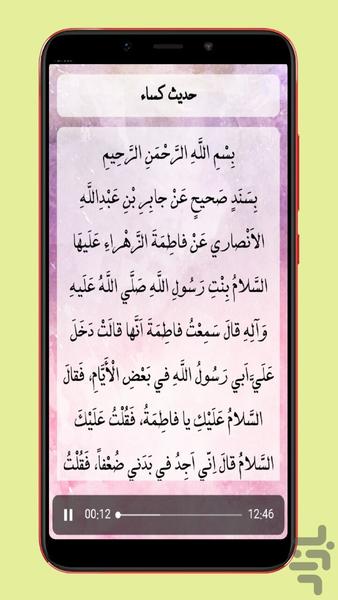 حديث كساء
بِسْمِ اللَّهِ الرَّحْمَنِ الرَّحِيمِ
بِسَنَدٍ صَحيحٍ عَنْ جابِرِ بْنِ عَبْدِاللَّهِ
الاَنْصاري عَنْ فاطِمَةَ الزَّهْراءِ عَلَيهَا
السَّلامُ بِنْتِ رَسُولِ اللَّهِ صَلَّي اللَّهُ عَلَيهِ
وَآلِهِ قالَ سَمِعْتُ فاطِمَةَ اَنَّها قالَتْ دَخَلَ
عَلَيَّ اَبي رَسُولُ اللَّهِ في بَعْضِ الْأَيَّامِ، فَقالَ
السَّلامُ عَلَيْكِ يا فاطِمَةُ، فَقُلْتُ عَلَيْكَ
السَّلامُ قالَ اِنّي اَجِدُ في بَدَني ضُعْفاً، فَقُلْتُ
00:12
12:46